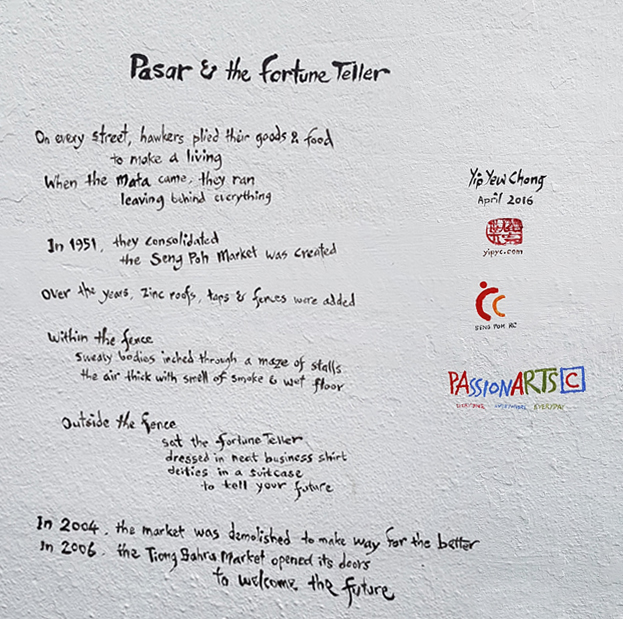 Pasar & the Fortune Teller
On every street, hawkers plied their goods & food
to make a living
When the mata came, they ran
leaving behind everything
In 1951, they consolidated
the Seng Poh Market was created
Over the years, zinc roofs, taps & fences were added
Within the fence
sweaty bodies inched through a maze of stalls
the air thick with smell of smoke & wet floor
Outside the fence
sat the Fortune Teller
dressed in neat business shirt
deities in a suitcase
to tell your future
In 2004, the market was demolished to make way for the better
In 2006, the Tiong Bahru Market opened its doors
to welcome the future
Yip Yew Chong
April 2016
yipyc.com
SENG POH RC
PASSIONARTS C
EVERYONE EVERYWHERE EVERYDAY